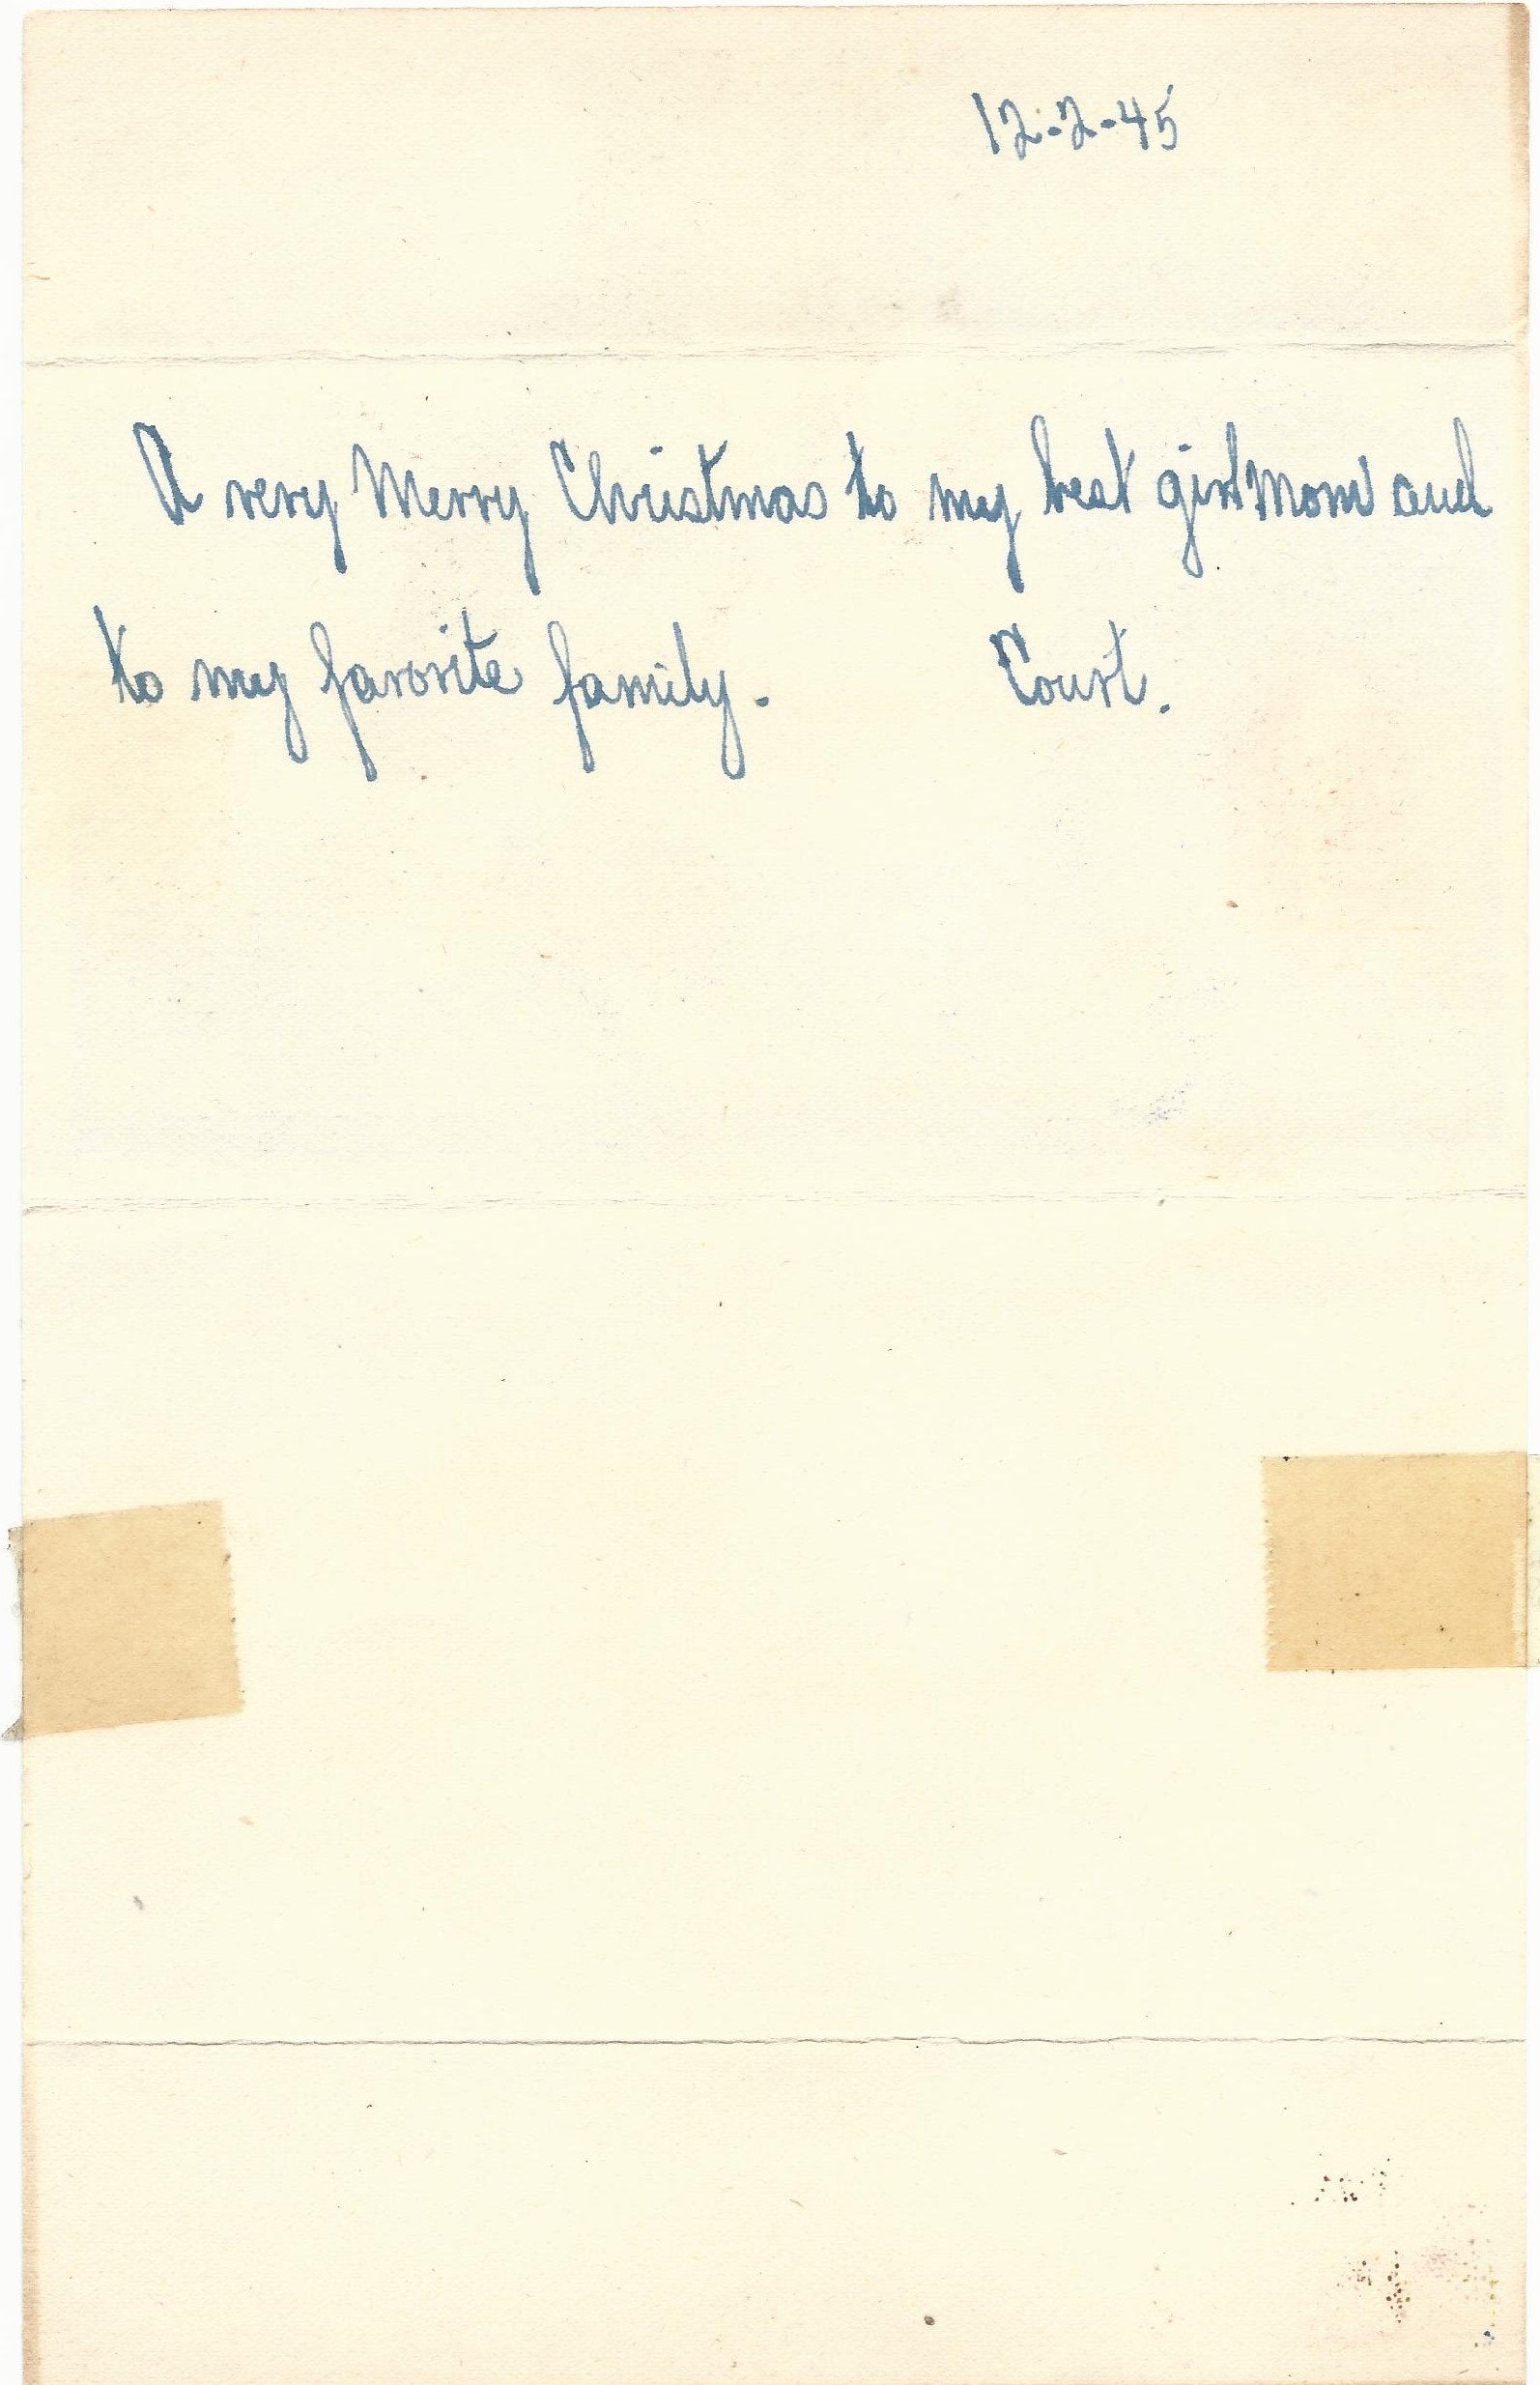 12-2-45
A very Merry Christmas to my best girl Mom and
to my favorite family. Court.